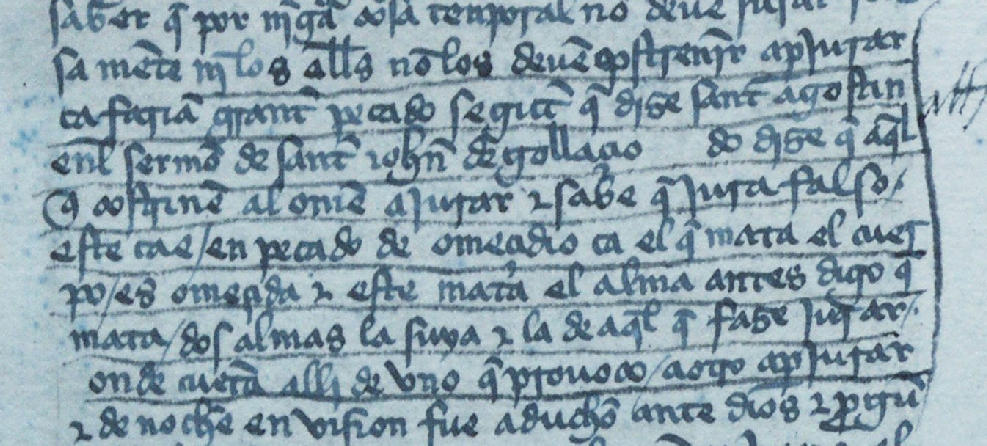 saber q̃ por nĩgũa cosa temporal no deue jurar
sa mẽte nj̃ los ellos nõ los deuẽ cõstrenjr a p̃jurar
ca fariã grant pecado segũt q̃ dize sant agostin
enl sermõ de sant iohñ degollaçio do dize q̃ aq̃l
q̃ costrinẽ al omẽ a jurar ⁊ sabe q̃ jura falso /
este cae / en pecado de omecidio ca el q̃ mata el cuer
po / es omeçida ⁊ este mata el alma antes digo q̃
mata / dos almas la suya ⁊ la de aq̃l q̃ faze jurar /.
onde cuẽta alli de vno q̃ prouoco / a otro a p̃jurar
⁊ de noche en vision fue aducho ante dios ⁊ p̃gũ